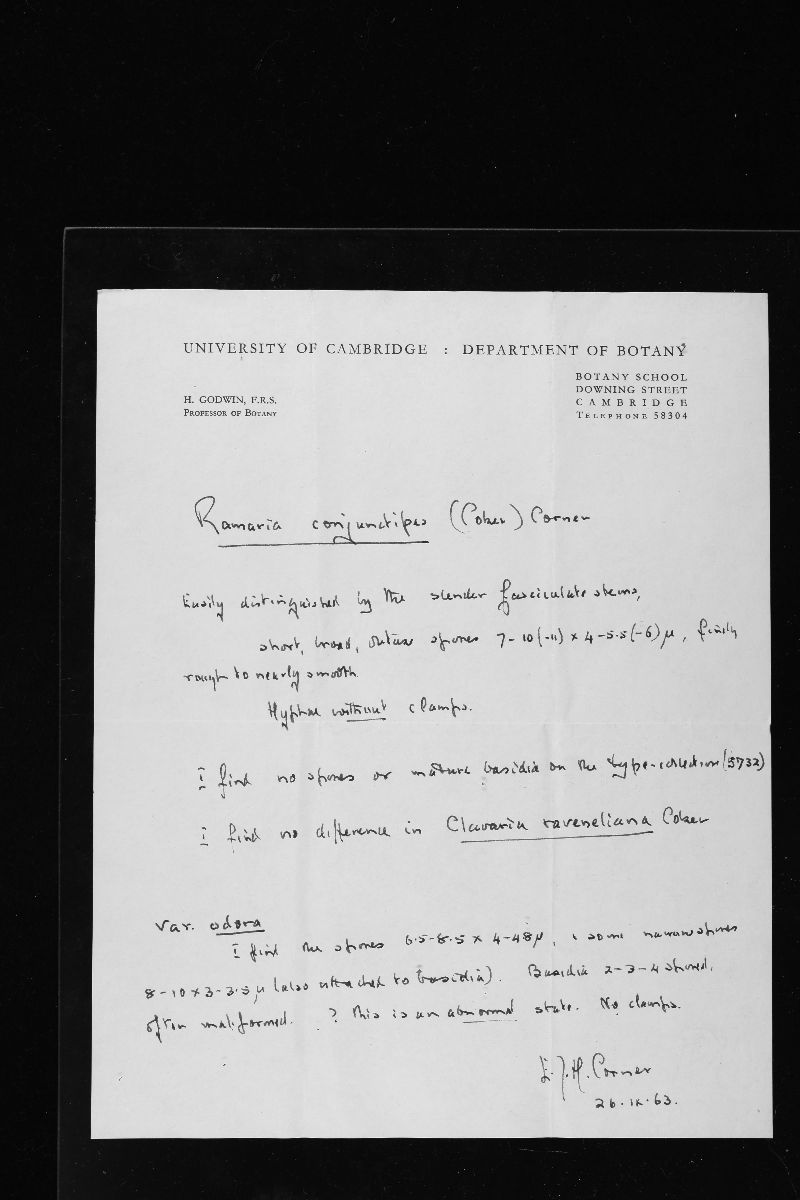 UNIVERSITY OF CAMBRIDGE : DEPARTMENT OF BOTANY
BOTANY SCHOOL
DOWNING STREET
CAMBRIDGE
TELEPHONE 58304
H. GODWIN, F.R.S.
PROFESSOR OF BOTANY
Ramaria conjunctipes (Coker) Corner
Easily distinguished by the slender fasciculate stems,
short, broad, obtuse spores 7-10(-11) x 4-5.5(-6)µ, finely
rough to nearly smooth.
Hyphae without clamps.
I find no spores or mature basidia on the type-collection (5732)
I find no difference in Clavaria raveneliana Coker
Var. odora
I find the spores 6.5-8.5 x 4-4.8µ, some narrow spores
8-10 x 3-3.5µ (also attached to basidia). Basidia 2-3-4 spored,
often malformed. ? This is an abnormal state. No clamps.
E.J.H. Corner
26.ix.63.